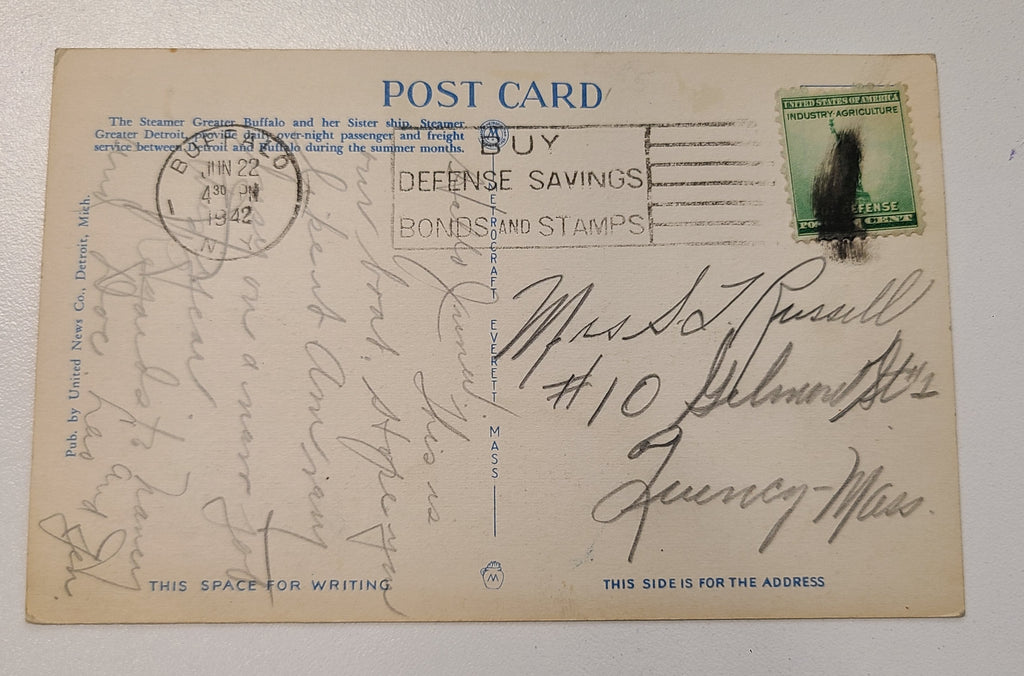 POST CARD
The Steamer Greater Buffalo and her Sister ship, Steamer
Greater Detroit, provide daily over-night passenger and freight
service between Detroit and Buffalo during the summer months.
BUFFALO
JUN 22
4 30 PM
1942
N.Y.
BUY
DEFENSE SAVINGS
BONDS AND STAMPS
UNITED STATES OF AMERICA
INDUSTRY AGRICULTURE
DEFENSE
CENT
Pub. by United News Co., Detroit, Mich.
DETROCRAFT EVERETT, MASS
Hello This is
our boat. Hope you
on a
Dear
Regards to
has
Mrs S. L. Russell
#10 Gilmore St
Quincy-Mass.
THIS SPACE FOR WRITING
M
THIS SIDE IS FOR THE ADDRESS